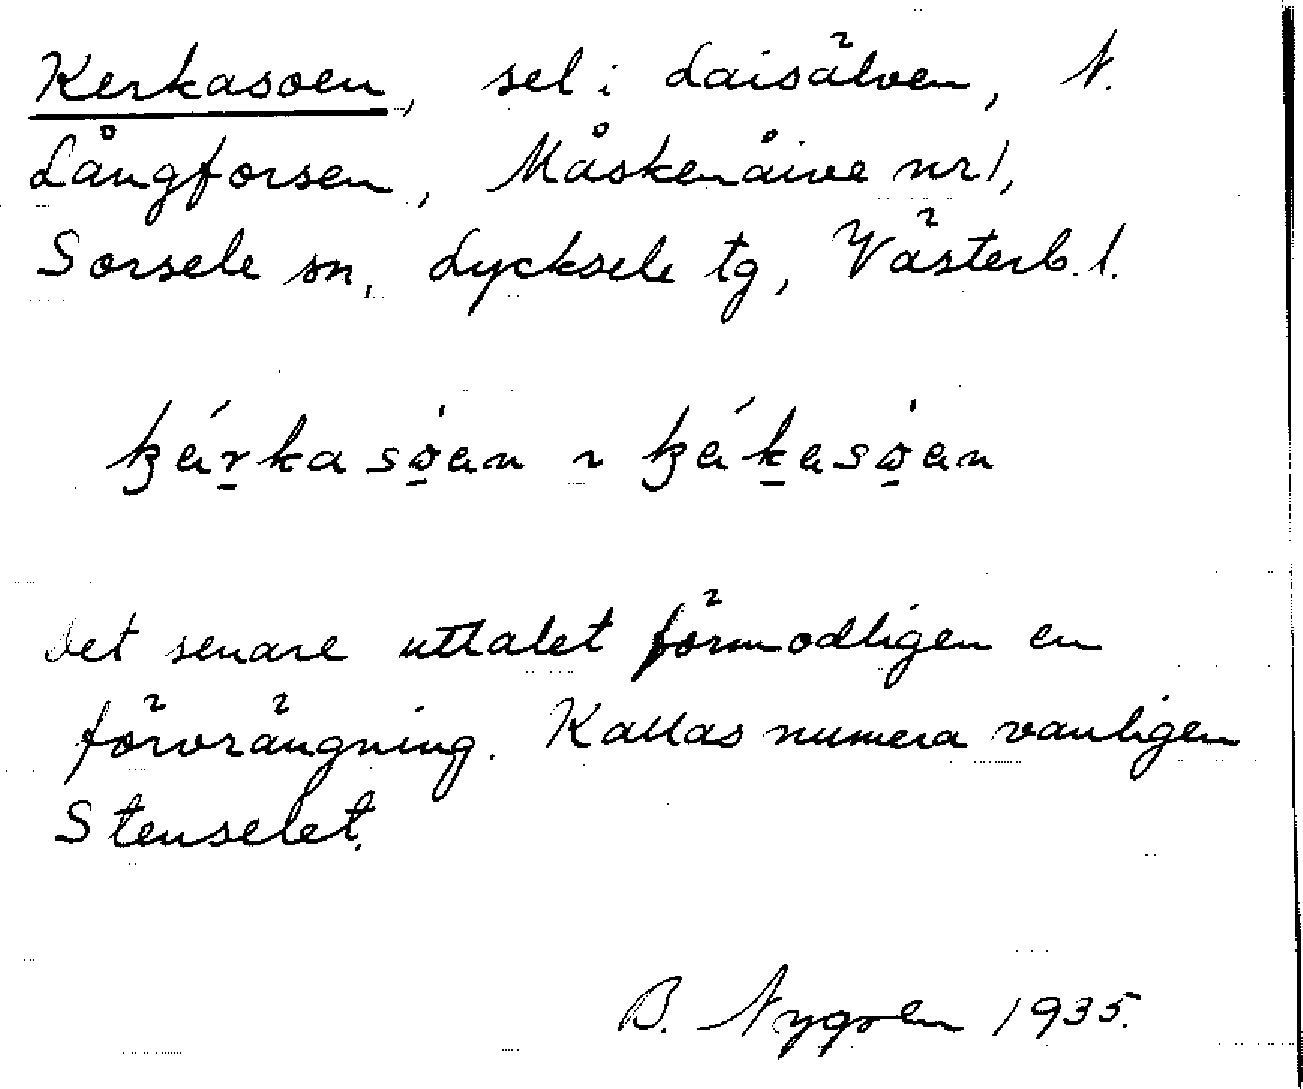 Kerkasoen, sel i Laisälven, N.
Långforsen, Måskenåive nr 1,
Sorsele sn, Lycksele tg, Västerb. l.
Det senare uttalet förmodligen en
förvrängning. Kallas numera vanligen
Stenselet.
B. Nygren 1935.